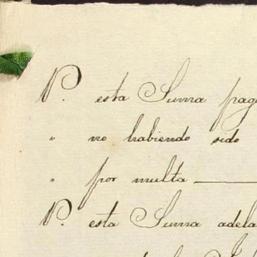 P. esta Suma pag
" no habiendo sido
" por multa
P. esta Suma adela